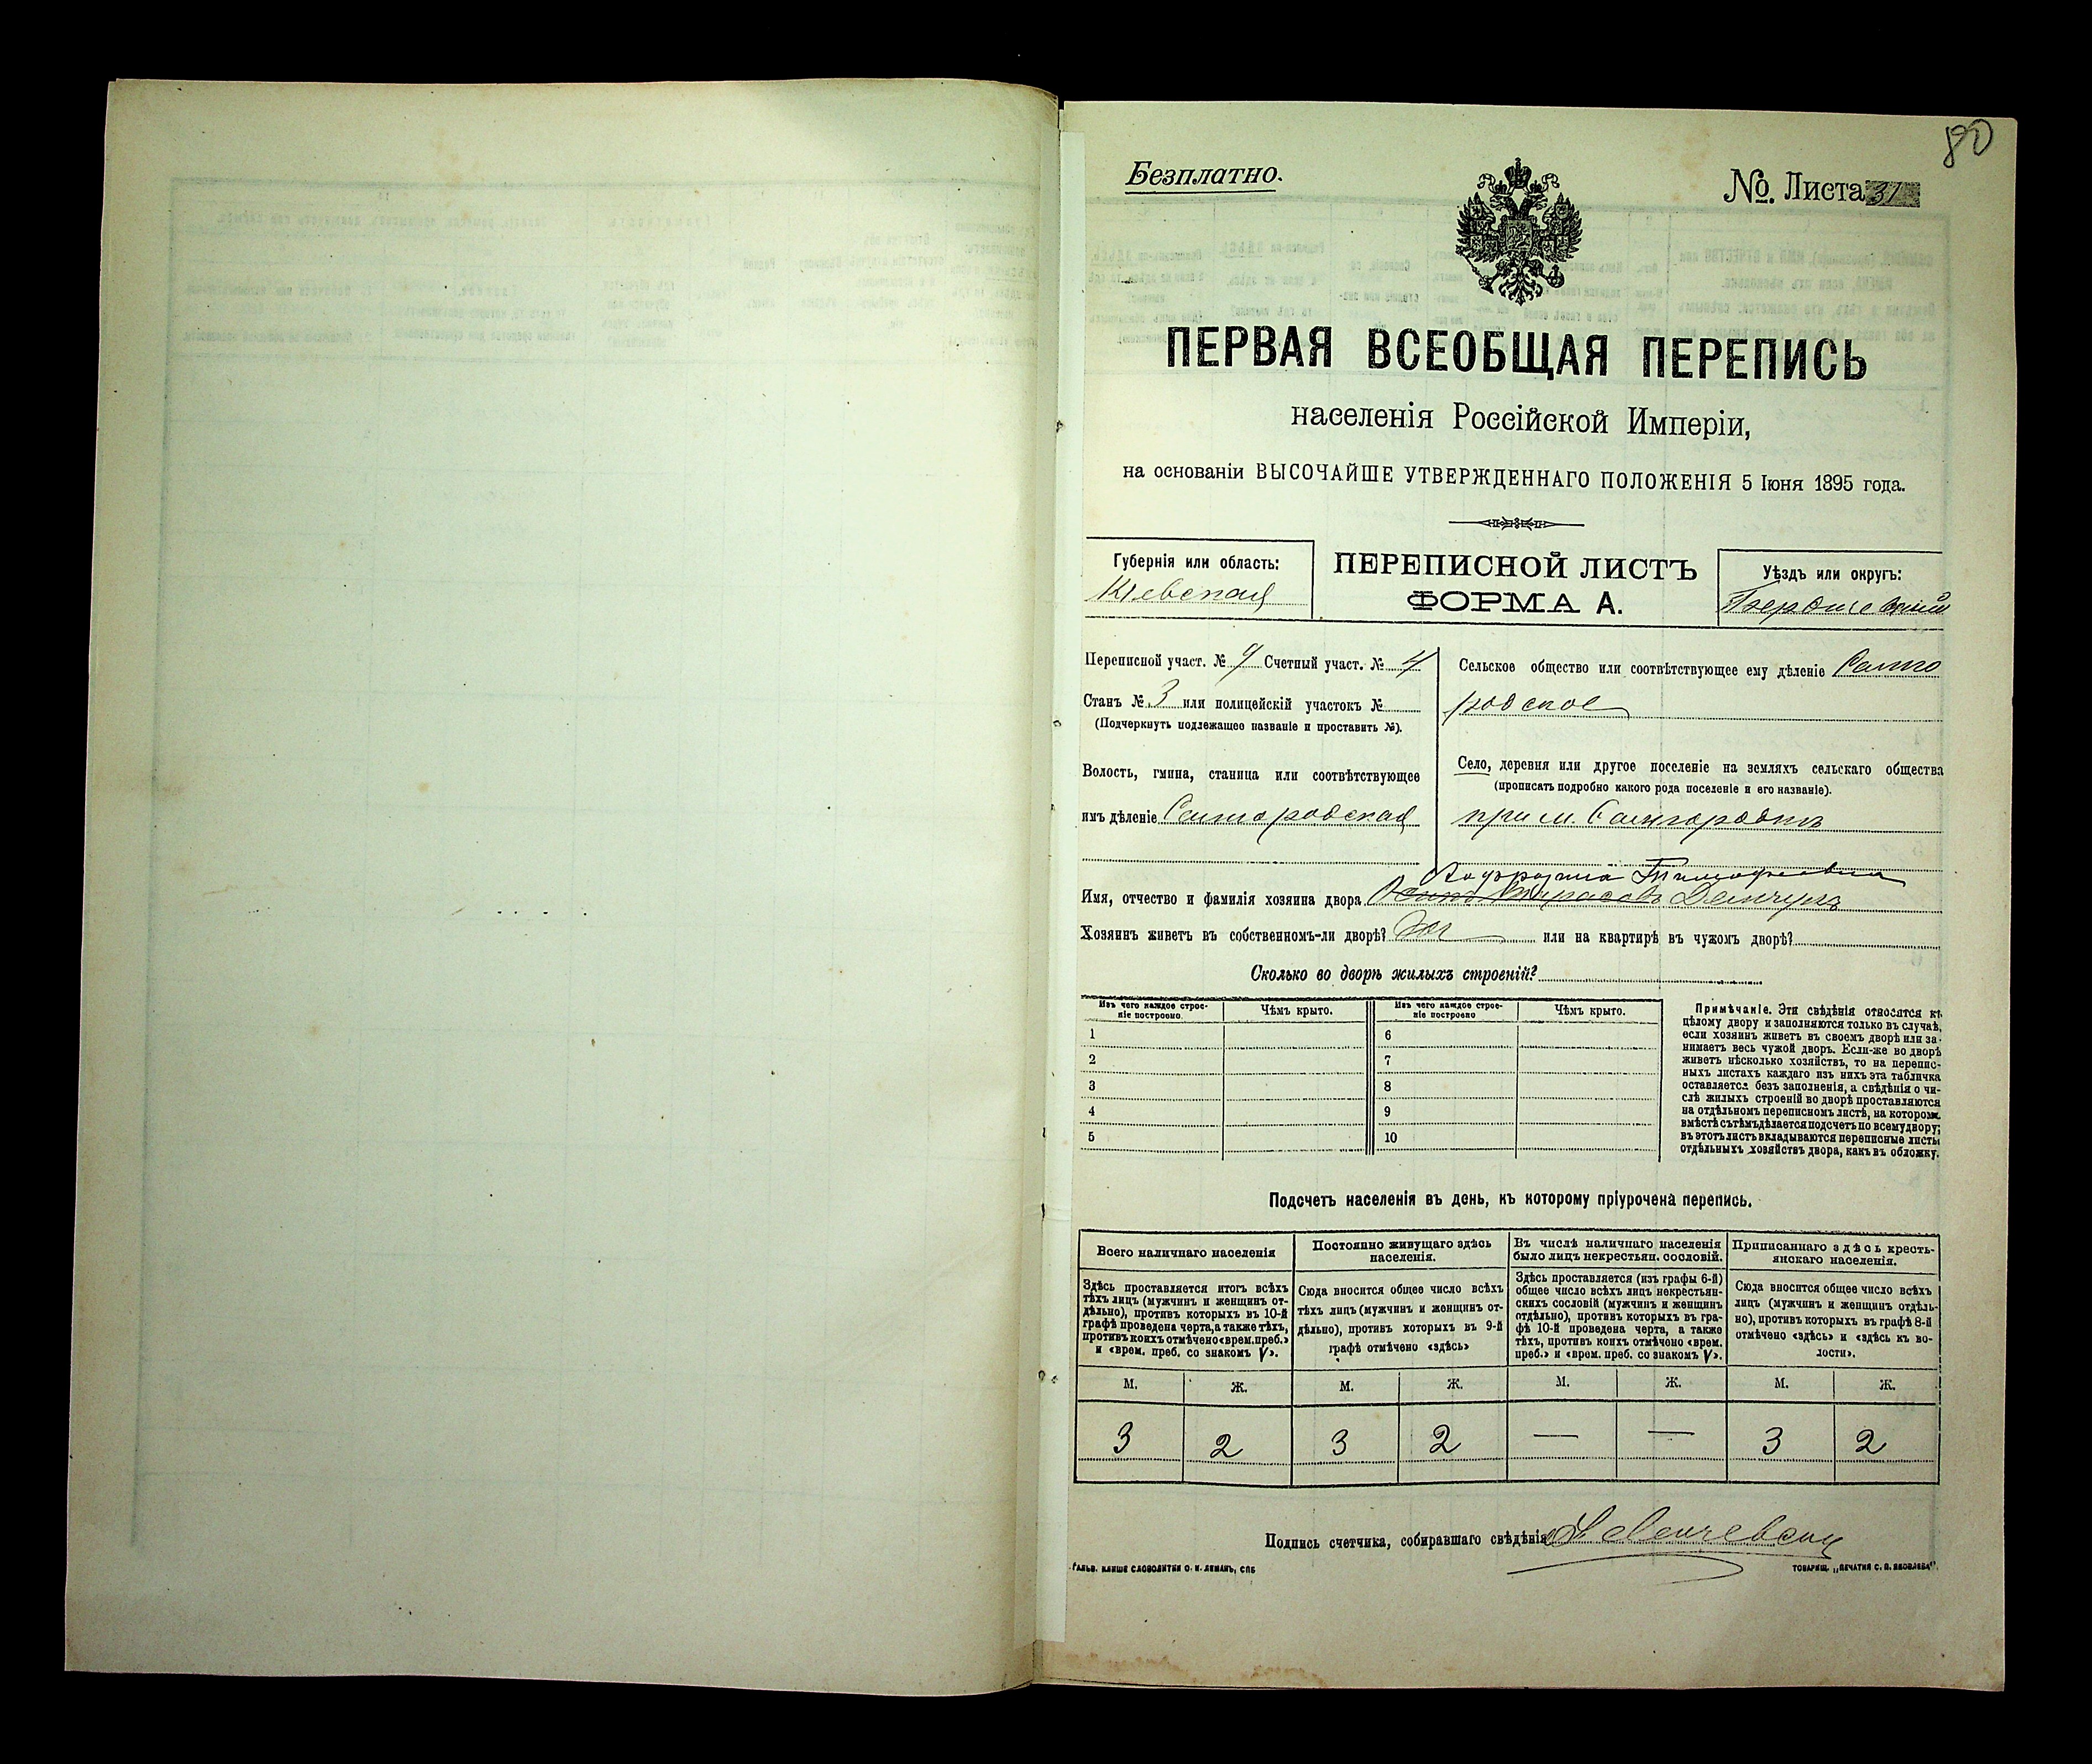 80
Безплатно.
№. Листа 31
ПЕРВАЯ ВСЕОБЩАЯ ПЕРЕПИСЬ
населенія Россійской Имперіи,
на основаніи ВЫСОЧАЙШЕ УТВЕРЖДЕННАГО ПОЛОЖЕНІЯ 5 Іюня 1895 года.
Губернія или область:
Кіевская
ПЕРЕПИСНОЙ ЛИСТЪ
ФОРМА А.
Уѣздъ или округъ:
Бердичевскій
Переписной участ. № 9 Счетный участ. № 4
Станъ № 3 или полицейскій участокъ №
(Подчеркнуть подлежащее названіе и проставить №).
Волость, гмина, станица или соотвѣтствующее
имъ дѣленіе Самгородская
Сельское общество или соотвѣтствующее ему дѣленіе Самго
родское
Село, деревня или другое поселеніе на земляхъ сельскаго общества
(прописать подробно какого рода поселеніе и его названіе).
при м. Самгородкѣ
Тимофеевна
Имя, отчество и фамилія хозяина двора Демчукъ
Хозяинъ живетъ въ собственномъ-ли дворѣ? или на квартирѣ въ чужомъ дворѣ?
Сколько во дворѣ жилыхъ строеній?
Изъ чего каждое строеніе построено. Чѣмъ крыто. Изъ чего каждое строеніе построено Чѣмъ крыто.
1 6
2 7
3 8
4 9
5 10
Примѣчаніе. Эти свѣдѣнія относятся къ
цѣлому двору и заполняются только въ случаѣ,
если хозяинъ живетъ въ своемъ дворѣ или за-
нимаетъ весь чужой дворъ. Если-же во дворѣ
живетъ нѣсколько хозяйствъ, то на перепис-
ныхъ листахъ каждаго изъ нихъ эта табличка
оставляется безъ заполненія, а свѣдѣнія о чи-
слѣ жилыхъ строеній во дворѣ проставляются
на отдѣльномъ переписномъ листѣ, на которомъ
вмѣстѣ съ тѣмъ дѣлается подсчетъ по всему двору;
въ этотъ листъ вкладываются переписные листы
отдѣльныхъ хозяйствъ двора, какъ въ обложку.
Подсчетъ населенія въ день, къ которому пріурочена перепись.
Всего наличнаго населенія
Здѣсь проставляется итогъ всѣхъ
тѣхъ лицъ (мужчинъ и женщинъ от-
дѣльно), противъ которыхъ въ 10-й
графѣ проведена черта, а также тѣхъ,
противъ коихъ отмѣчено «врем. преб.»
и «врем. преб. со знакомъ V».
Постоянно живущаго здѣсь
населенія.
Сюда вносится общее число всѣхъ
тѣхъ лицъ (мужчинъ и женщинъ от-
дѣльно), противъ которыхъ въ 9-й
графѣ отмѣчено «здѣсь»
Въ числѣ наличнаго населенія
было лицъ некрестьян. сословій.
Здѣсь проставляется (изъ графы 6-й)
общее число всѣхъ лицъ некрестьян-
скихъ сословій (мужчинъ и женщинъ
отдѣльно), противъ которыхъ въ гра-
фѣ 10-й проведена черта, а также
тѣхъ, противъ коихъ отмѣчено «врем.
преб.» и «врем. преб. со знакомъ V».
Приписаннаго здѣсь кресть-
янскаго населенія.
Сюда вносится общее число всѣхъ
лицъ (мужчинъ и женщинъ отдѣль-
но), противъ которыхъ въ графѣ 8-й
отмѣчено «здѣсь» и «здѣсь къ во-
лости».
М. Ж. М. Ж. М. Ж. М. Ж.
3 2 3 2 — — 3 2
Подпись счетчика, собиравшаго свѣдѣнія
ГАЛЬВ. КЛИШЕ СЛОВОЛИТНИ О. И. ЛЕМАНЪ, СПБ
ТОВАРИЩ. „ПЕЧАТНЯ С. П. ЯКОВЛЕВА“.